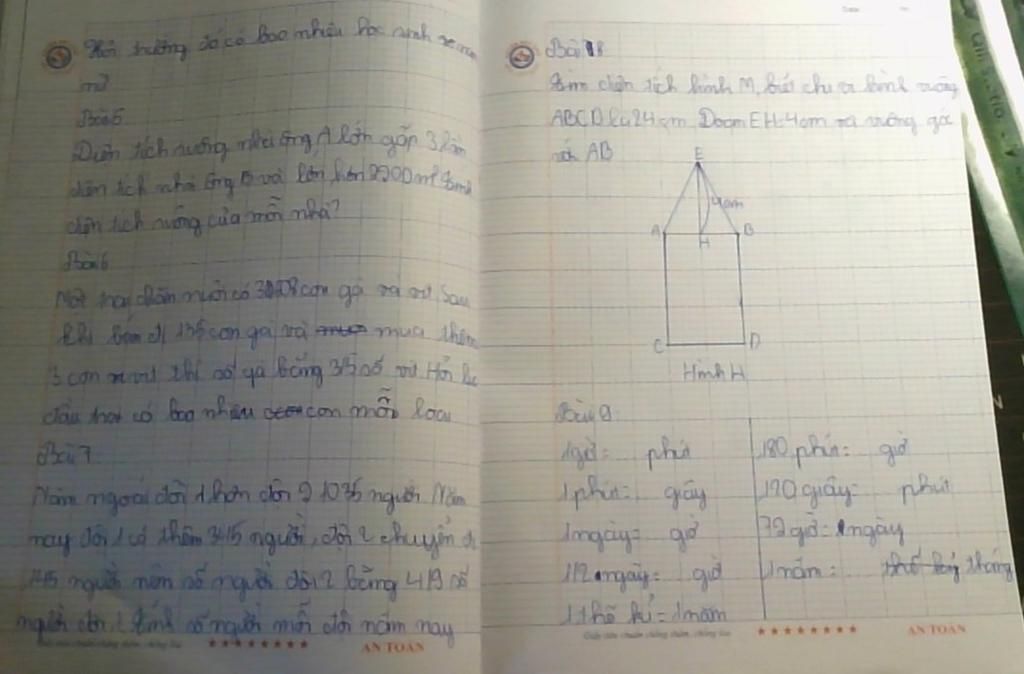 Hỏi trường đó có bao nhiêu học sinh
nữ
Bài 5
Diện tích ruộng nhà ông A lớn gấp 3 lần
diện tích nhà ông B và lớn hơn 2200 m²
diện tích ruộng của mỗi nhà?
Bài 6
Một trại chăn nuôi có con gà và vịt Sau
khi bán đi 135 con gà và mua thêm
con vịt thì số gà bằng 3/5 số vịt Hỏi lúc
đầu trại có bao nhiêu con mỗi loại
Bài 7
Năm ngoái đội 1 hơn đội 2 1035 người Năm
nay đội 1 có thêm người, đội 2 chuyển đi
người nên số người đội 2 bằng 4/9 số
người đội 1 Tính số người mỗi đội năm nay
AN TOÀN
Bài 8
Tìm diện tích hình M, biết chu vi hình vuông
ABCD là 24 cm Đoạn EH=4cm và vuông góc
với AB
E
4cm
A H B
C D
Hình H
Bài 9:
1 giờ = phút 180 phút = giờ
1 phút = giây 120 giây = phút
1 ngày = giờ 72 giờ = ngày
1/2 ngày = giờ 1 năm = tháng
1 thế kỉ = năm
AN TOÀN